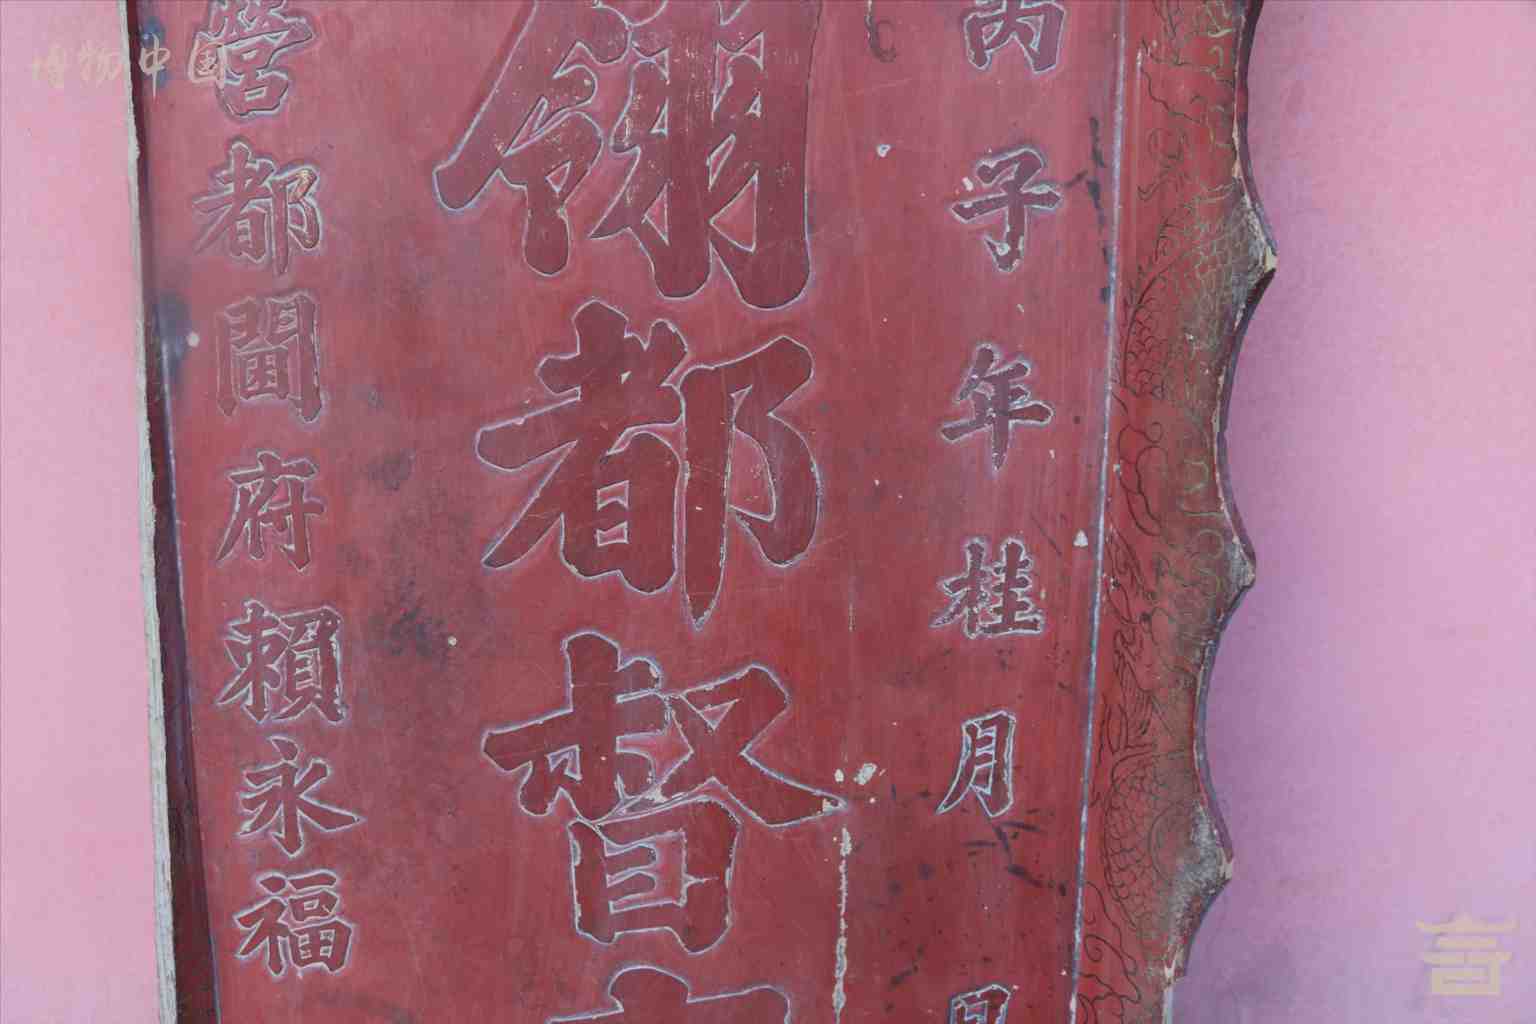 丙子年桂月
翎都督
營都閫府賴永福
博物中国